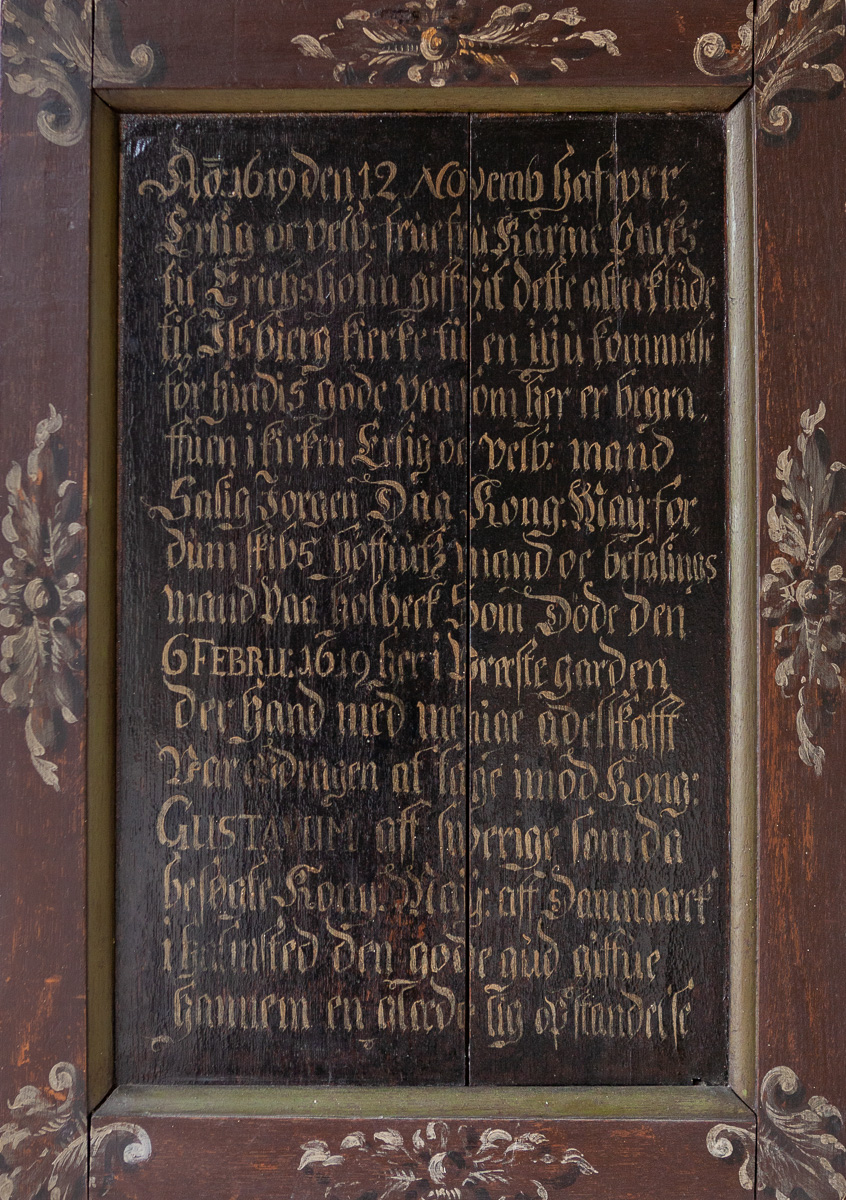 Aō. 1619 den 12 Novemb hafwer
Erlig oc velb: frue frü Karine Packs
til Erichsholm giffvit dette alterklæde
til Ilsbierg kierke til en ihü kommelse
for hindis gode ven som her er begra„
ffüen i kirken Erlig oc velb: mand
Salig Jorgen Daa Kong: Maÿ: for„
düm skibs höffüitz mand oc befalings
mand Paa holbeck Som Döde den
6 FEBRU: 1619 her i Præste garden
der hand med menige adelskafft
Var Vdragen at lige imod Kong:
GUSTAVUM aff swerige som da
besøgte Kong: Maÿ: aff Danmarck
i halmsted den gode gud giffue
hannem en glæde lig opstandelse